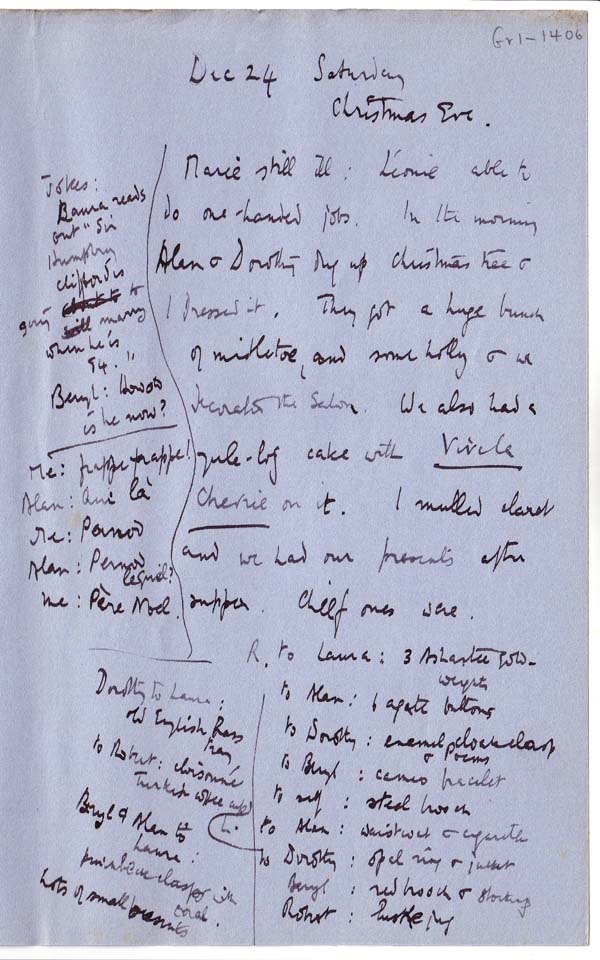 Gr1-1406
Dec 24 Saturday
Christmas Eve.
Marie still ill; Léonie able to
do one-handed jobs. In the morning
Alan & Dorothy dug up Christmas tree &
I dressed it. They got a huge bunch
of mistletoe, and some holly & we
decorated the Salon. We also had a
yule-log cake with Vive la
Chevrie on it. I mulled claret
and we had our presents after
supper. Chief ones were.
R. to Laura: 3 Ashantee gold-
weights
to Alan: 6 agate buttons
to Dorothy: enamel cloak clasp
& Poems
to Beryl: cameo bracelet
to self: steel brooch
L. to Alan: waistcoat & cigarette
to Dorothy: opal ring & jacket
Beryl: red brooch & stocking
Robert: lustre jug
Jokes:
Laura reads
out "Sir
Humphry
Clifford is
going to
marry
when he is
94."
Beryl: How old
is he now?
Me: frappe frappe!
Alan: Qui là
Me: Pernod
Alan: Pernod
lequel?
Me: Père Noel.
Dorothy to Laura:
old English brass
tray
to Robert: cloisonné
Turkish coffee cup
Beryl & Alan to
Laura:
pinchbeck clasp with
coral.
Lots of small presents